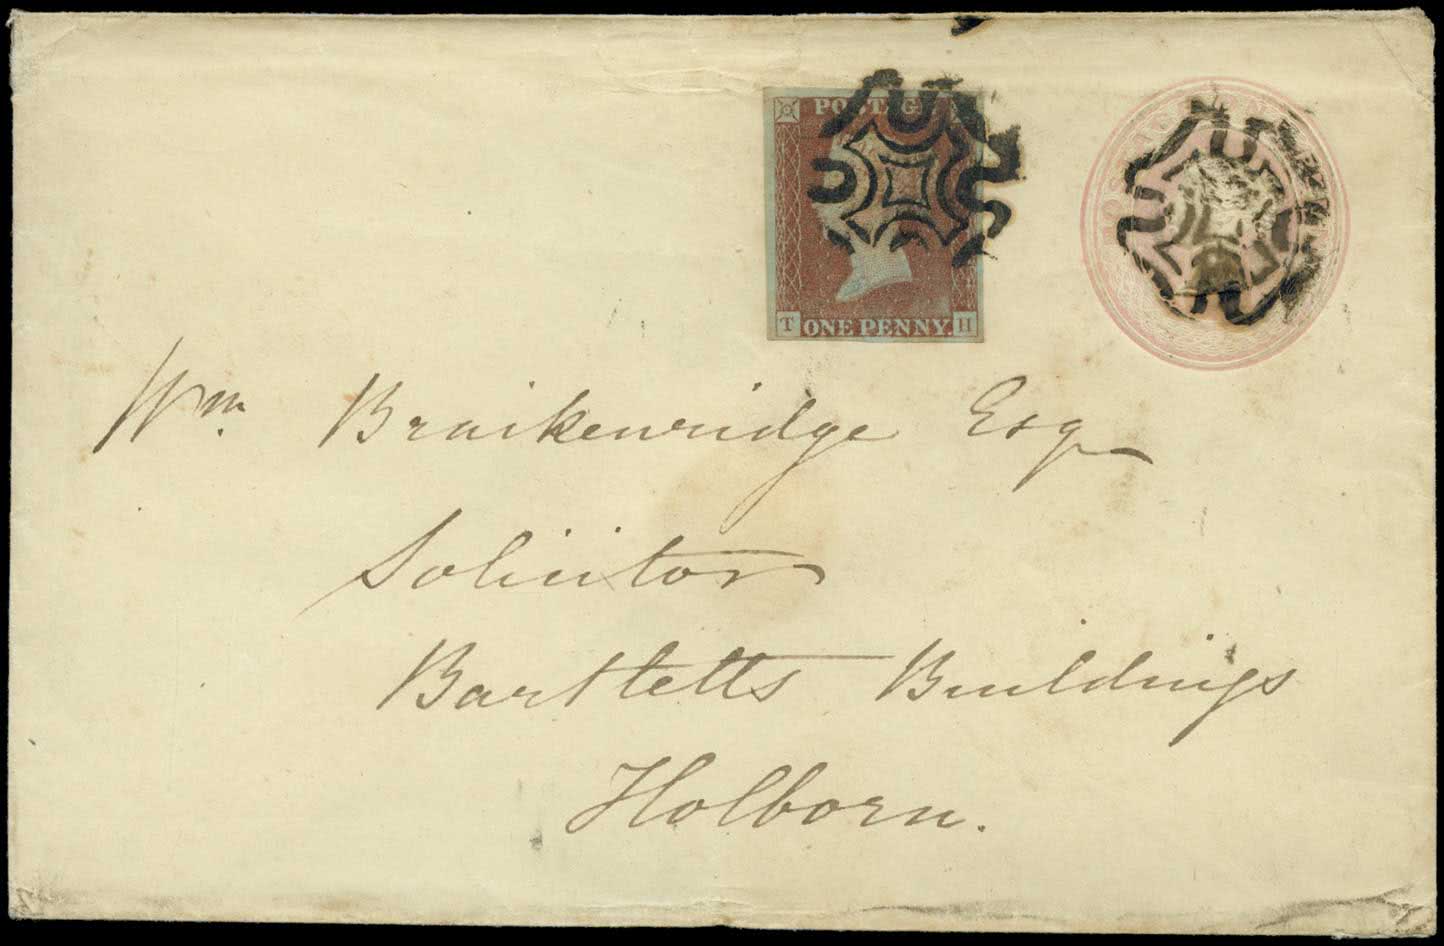 POSTAGE
T ONE PENNY. H
POSTAGE
Wm. Braikenridge Esq
Solicitor
Bartletts Buildings
Holborn.